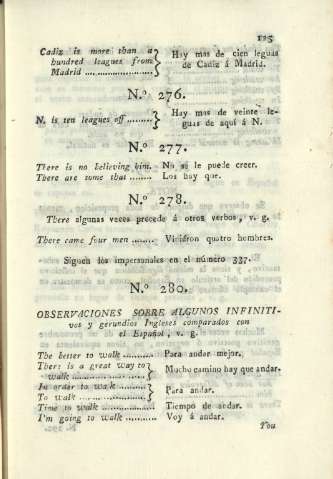 125
Cadiz is more than a
hundred leagues from
Madrid .................
Hay mas de cien leguas
de Cadiz á Madrid.
N.º 276.
N. is ten leagues off ........
Hay mas de veinte le-
guas de aquí á N.
N.º 277.
There is no believing him. No se le puede creer.
There are some that ....... Los hay que.
N.º 278.
There algunas veces precede á otros verbos, v. g.
There came four men ........ Viniéron quatro hombres.
Siguen los impersonales en el número 337.
N.º 280.
OBSERVACIONES SOBRE ALGUNOS INFINITI-
vos y gerundios Ingleses comparados con
el Español, v. g.
The better to walk .......... Para andar mejor.
There is a great way to
walk ....................
Mucho camino hay que andar.
In order to walk .........
To walk ...................
Para andar.
Time to walk .............. Tiempo de andar.
I'm going to walk .......... Voy á andar.
You